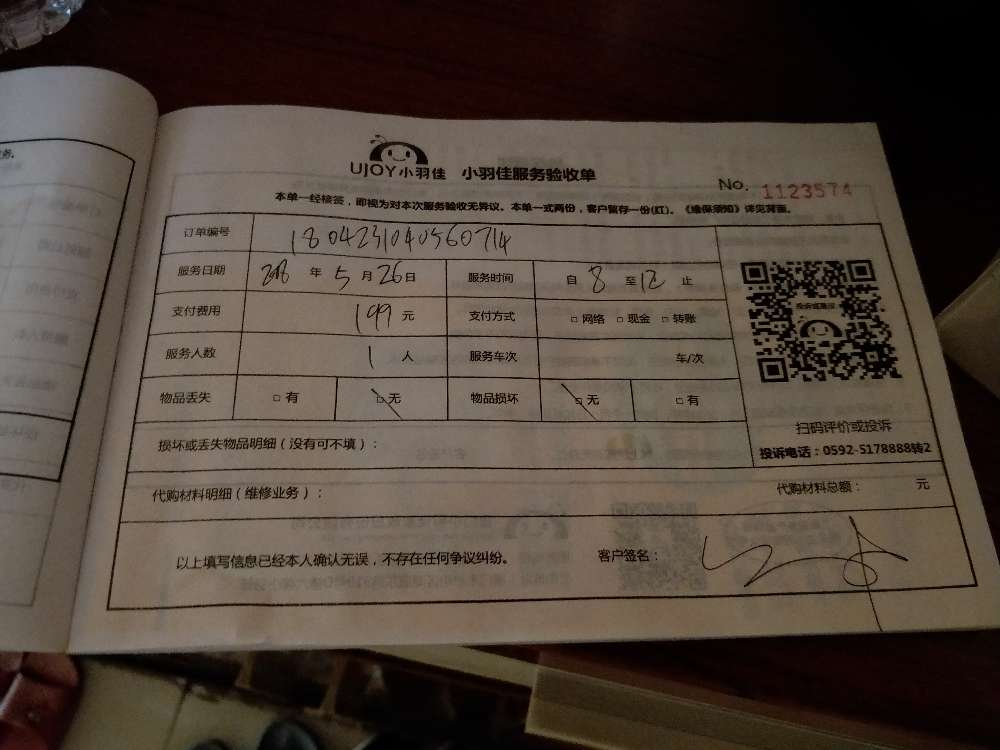 UJOY小羽佳 小羽佳服务验收单
No. 1123574
本单一经核签，即视为对本次服务验收无异议。本单一式两份，客户留存一份(红)。《维保须知》详见背面。
订单编号 180423104056 0714
服务日期 2018 年 5 月 26 日 服务时间 自 8 至 12 止
支付费用 199 元 支付方式 □ 网络 □ 现金 □ 转账
服务人数 1 人 服务车次 车/次
物品丢失 □ 有 □ 无 物品损坏 □ 无 □ 有
投诉或建议
扫码评价或投诉
投诉电话：0592-5178888转2
损坏或丢失物品明细（没有可不填）：
代购材料明细（维修业务）： 代购材料总额： 元
以上填写信息已经本人确认无误，不存在任何争议纠纷。 客户签名：